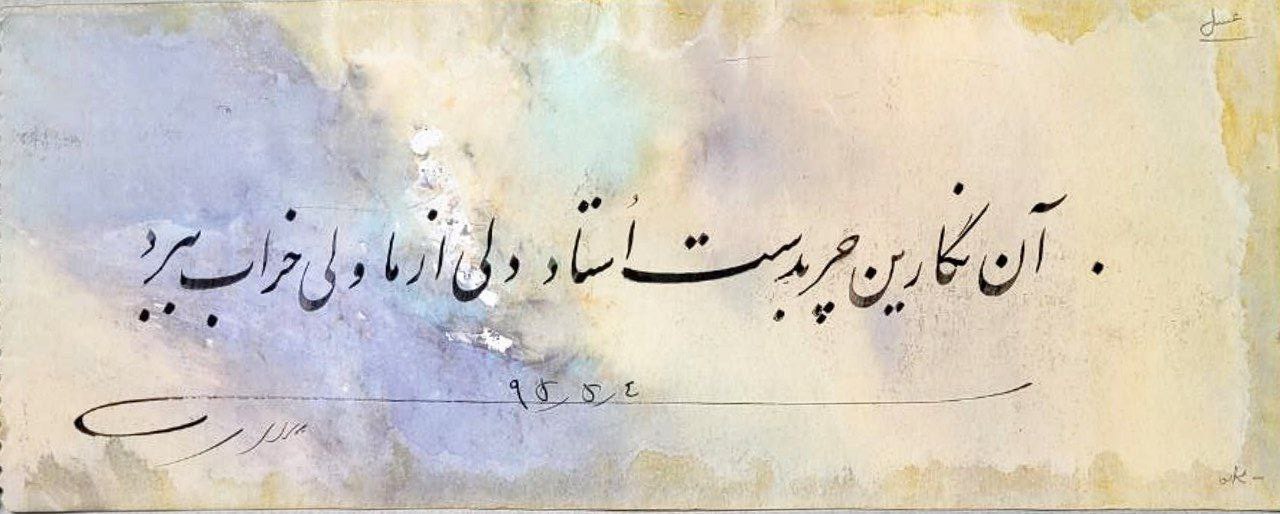 آن نگارین چربدست اُستاد دلی از ما ولی خراب ببرد